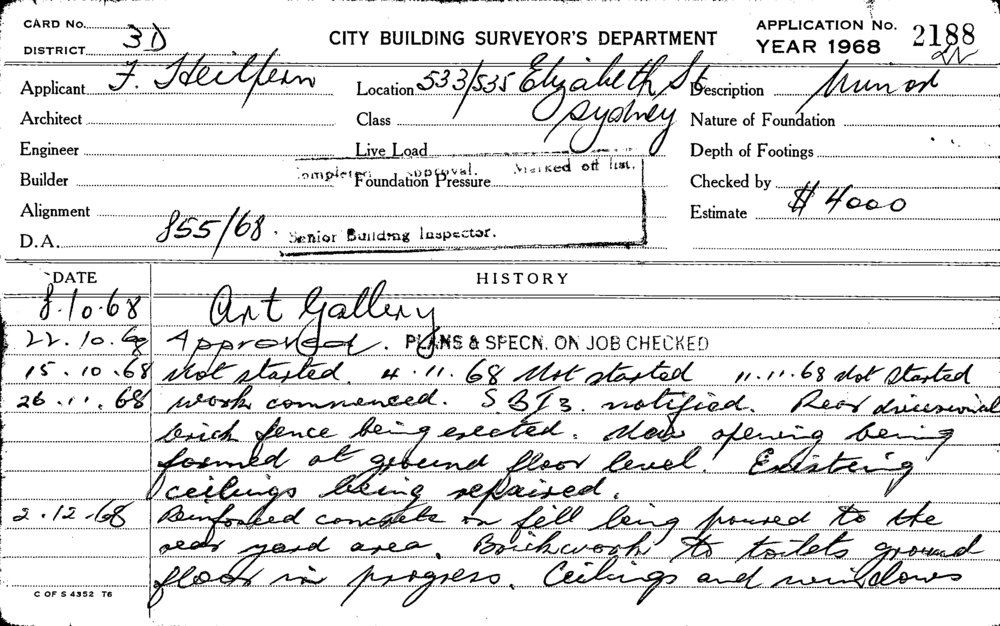 CARD No.
DISTRICT 3D
CITY BUILDING SURVEYOR'S DEPARTMENT
APPLICATION No. 2188
YEAR 1968
Applicant F. Heilpern
Location 533/535 Elizabeth St
Sydney
Description Minor
Architect
Class
Nature of Foundation
Engineer
Live Load
Depth of Footings
Builder
Foundation Pressure
Checked by
approval. Marked off list.
Alignment
Estimate $4000
D.A. 855/68
Senior Building Inspector.
DATE HISTORY
8.10.68 Art Gallery
22.10.68 Approved. PLANS & SPECN. ON JOB CHECKED
15.10.68 Not started. 4.11.68 Not started 11.11.68 Not started
26.11.68 Work commenced. S.B.I 3. notified. Rear divisional
brick fence being erected. New opening being
formed at ground floor level. Existing
ceilings being repaired.
2.12.68 Reinforced concrete on fill being poured to the
rear yard area. Brickwork to toilets ground
floor in progress. Ceilings and windows
C OF S 4352 T6